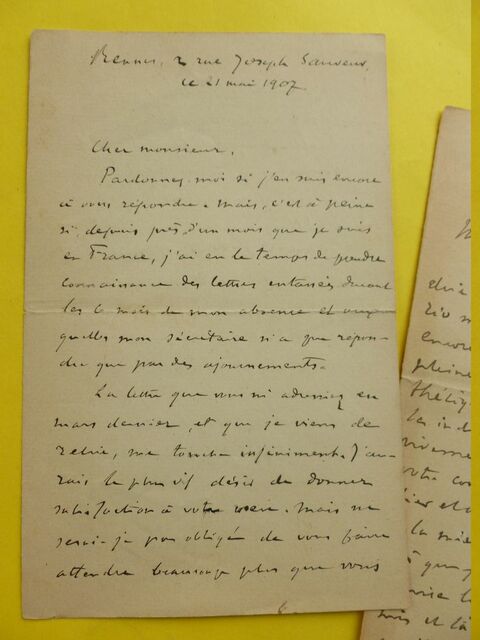 Rennes, 2 rue Joseph Sauveur,
le 21 mai 1907.
Cher monsieur,
Pardonnez-moi si j'en suis encore
à vous répondre. Mais, c'est à peine
si, depuis près d'un mois que je suis
en France, j'ai eu le temps de prendre
connaissance des lettres entassées durant
les 6 mois de mon absence et aux
quelles mon secrétaire n'a que répon-
du que par des ajournements.
La lettre que vous m'adressiez en
mars dernier, et que je viens de
relire, me touche infiniment. J'au-
rais le plus vif désir de donner
satisfaction à votre vœu. Mais ne
serai-je pas obligé de vous faire
attendre beaucoup plus que vous
encore
pleine
la
votre
et la